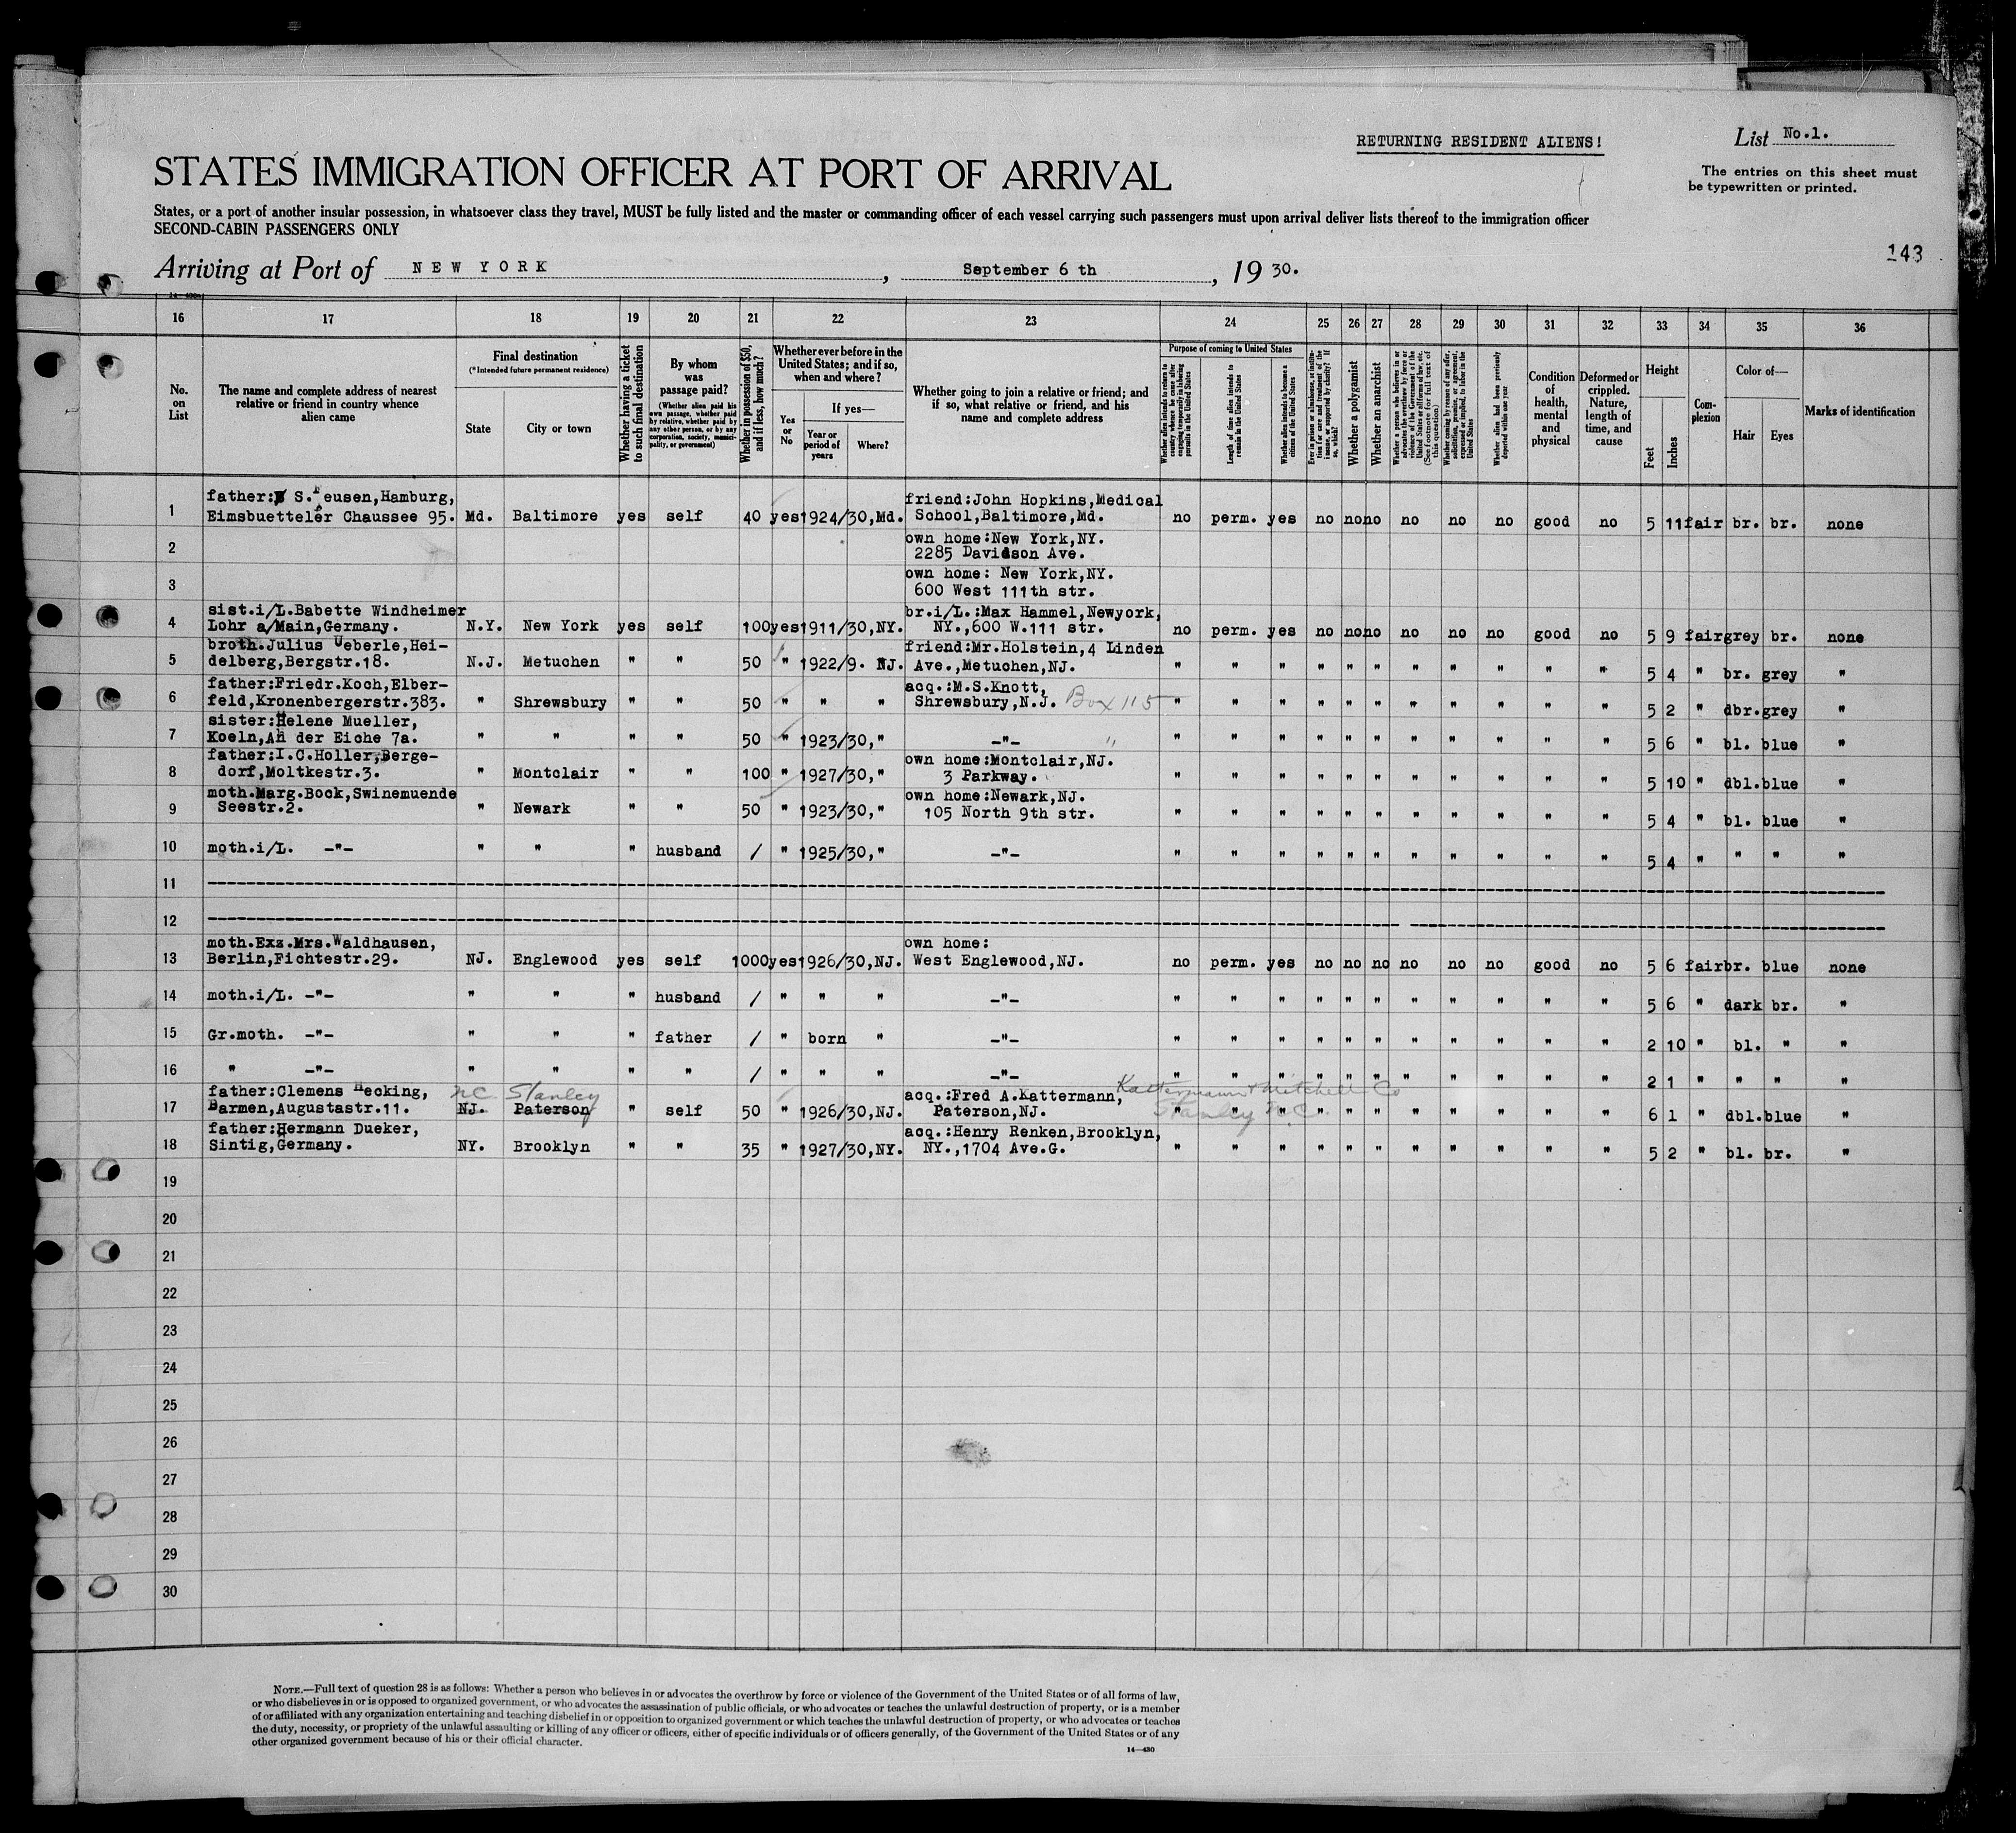 RETURNING RESIDENT ALIENS!
List No.1.
STATES IMMIGRATION OFFICER AT PORT OF ARRIVAL
The entries on this sheet must
be typewritten or printed.
States, or a port of another insular possession, in whatsoever class they travel, MUST be fully listed and the master or commanding officer of each vessel carrying such passengers must upon arrival deliver lists thereof to the immigration officer
SECOND-CABIN PASSENGERS ONLY
143
Arriving at Port of NEW YORK, September 6 th, 19 30.
16 17 18 19 20 21 22 23 24 25 26 27 28 29 30 31 32 33 34 35 36
No. on List
The name and complete address of nearest relative or friend in country whence alien came
Final destination
(*Intended future permanent residence)
State
City or town
Whether having a ticket to such final destination
By whom was passage paid?
(Whether alien paid his own passage, whether paid by relative, whether paid by any other person, or by any corporation, society, municipality, or government)
Whether in possession of $50, and if less, how much?
Whether ever before in the United States; and if so, when and where?
Yes or No
If yes—
Year or period of years
Where?
Whether going to join a relative or friend; and if so, what relative or friend, and his name and complete address
Purpose of coming to United States
Whether alien intends to return to country whence he came after engaging temporarily in laboring pursuits in the United States
Length of time alien intends to remain in the United States
Whether alien intends to become a citizen of the United States
Ever in prison or almshouse, or institution for care and treatment of the insane, or supported by charity? If so, which?
Whether a polygamist
Whether an anarchist
Whether a person who believes in or advocates the overthrow by force or violence of the Government of the United States or all forms of law, etc. (See footnote for full text of this question)
Whether coming by reason of any offer, solicitation, promise, or agreement, expressed or implied, to labor in the United States
Whether alien had been previously deported within one year
Condition of health, mental and physical
Deformed or crippled. Nature, length of time, and cause
Height
Feet
Inches
Complexion
Color of—
Hair
Eyes
Marks of identification
1 father: S. eusen,Hamburg,
Eimsbuetteler Chaussee 95. Md. Baltimore yes self 40 yes 1924/30,Md. friend:John Hopkins,Medical
School,Baltimore,Md. no perm. yes no no no no no no good no 5 11 fair br. br. none
2 own home:New York,NY.
2285 Davidson Ave.
3 own home: New York,NY.
600 West 111th str.
4 sist.i/L.Babette Windheimer
Lohr a/Main,Germany. N.Y. New York yes self 100 yes 1911/30,NY. br.i/L.:Max Hammel,Newyork,
NY.,600 W.111 str. no perm. yes no no no no no no good no 5 9 fair grey br. none
5 broth.Julius Ueberle,Hei-
delberg,Bergstr.18. N.J. Metuchen " " 50 " 1922/9. NJ. friend:Mr.Holstein,4 Linden
Ave.,Metuchen,NJ. " " " " " " " " " " " 5 4 " br. grey "
6 father:Friedr.Koch,Elber-
feld,Kronenbergerstr.383. " Shrewsbury " " 50 " " " acq.:M.S.Knott,
Shrewsbury,N.J. Box 115 " " " " " " " " " " " 5 2 " dbr. grey "
7 sister:Helene Mueller,
Koeln,An der Eiche 7a. " " " " 50 " 1923/30," -"- " " " " " " " " " " " " 5 6 " bl. blue "
8 father:I.C.Holler,Berge-
dorf,Moltkestr.3. " Montclair " " 100 " 1927/30," own home:Montclair,NJ.
3 Parkway. " " " " " " " " " " " 5 10 " dbl. blue "
9 moth.Marg.Bock,Swinemuende
Seestr.2. " Newark " " 50 " 1923/30," own home:Newark,NJ.
105 North 9th str. " " " " " " " " " " " 5 4 " bl. blue "
10 moth.i/L. -"- " " " husband / " 1925/30," -"- " " " " " " " " " " " 5 4 " " " "
11
12
13 moth.Exz.Mrs.Waldhausen,
Berlin,Fichtestr.29. NJ. Englewood yes self 1000 yes 1926/30,NJ. own home:
West Englewood,NJ. no perm. yes no no no no no no good no 5 6 fair br. blue none
14 moth.i/L. -"- " " " husband / " " " -"- " " " " " " " " " " " 5 6 " dark br. "
15 Gr.moth. -"- " " " father / " born " -"- " " " " " " " " " " " 2 10 " bl. " "
16 " -"- " " " " / " " " -"- " " " " " " " " " " " 2 1 " " " "
NC. Stanley
Kattermann & Mitchell Co
Stanley N.C.
17 father:Clemens Hecking,
Barmen,Augustastr.11. NJ. Paterson " self 50 " 1926/30,NJ. acq.:Fred A.Kattermann,
Paterson,NJ. " " " " " " " " " " " 6 1 " dbl. blue "
18 father:Hermann Dueker,
Sintig,Germany. NY. Brooklyn " " 35 " 1927/30,NY. acq.:Henry Renken,Brooklyn,
NY.,1704 Ave.G. " " " " " " " " " " " 5 2 " bl. br. "
19
20
21
22
23
24
25
26
27
28
29
30
NOTE.—Full text of question 28 is as follows: Whether a person who believes in or advocates the overthrow by force or violence of the Government of the United States or of all forms of law,
or who disbelieves in or is opposed to organized government, or who advocates the assassination of public officials, or who advocates or teaches the unlawful destruction of property, or is a member
of or affiliated with any organization entertaining and teaching disbelief in or opposition to organized government or which teaches the unlawful destruction of property, or who advocates or teaches
the duty, necessity, or propriety of the unlawful assaulting or killing of any officer or officers, either of specific individuals or of officers generally, of the Government of the United States or of any
other organized government because of his or their official character.
14—430